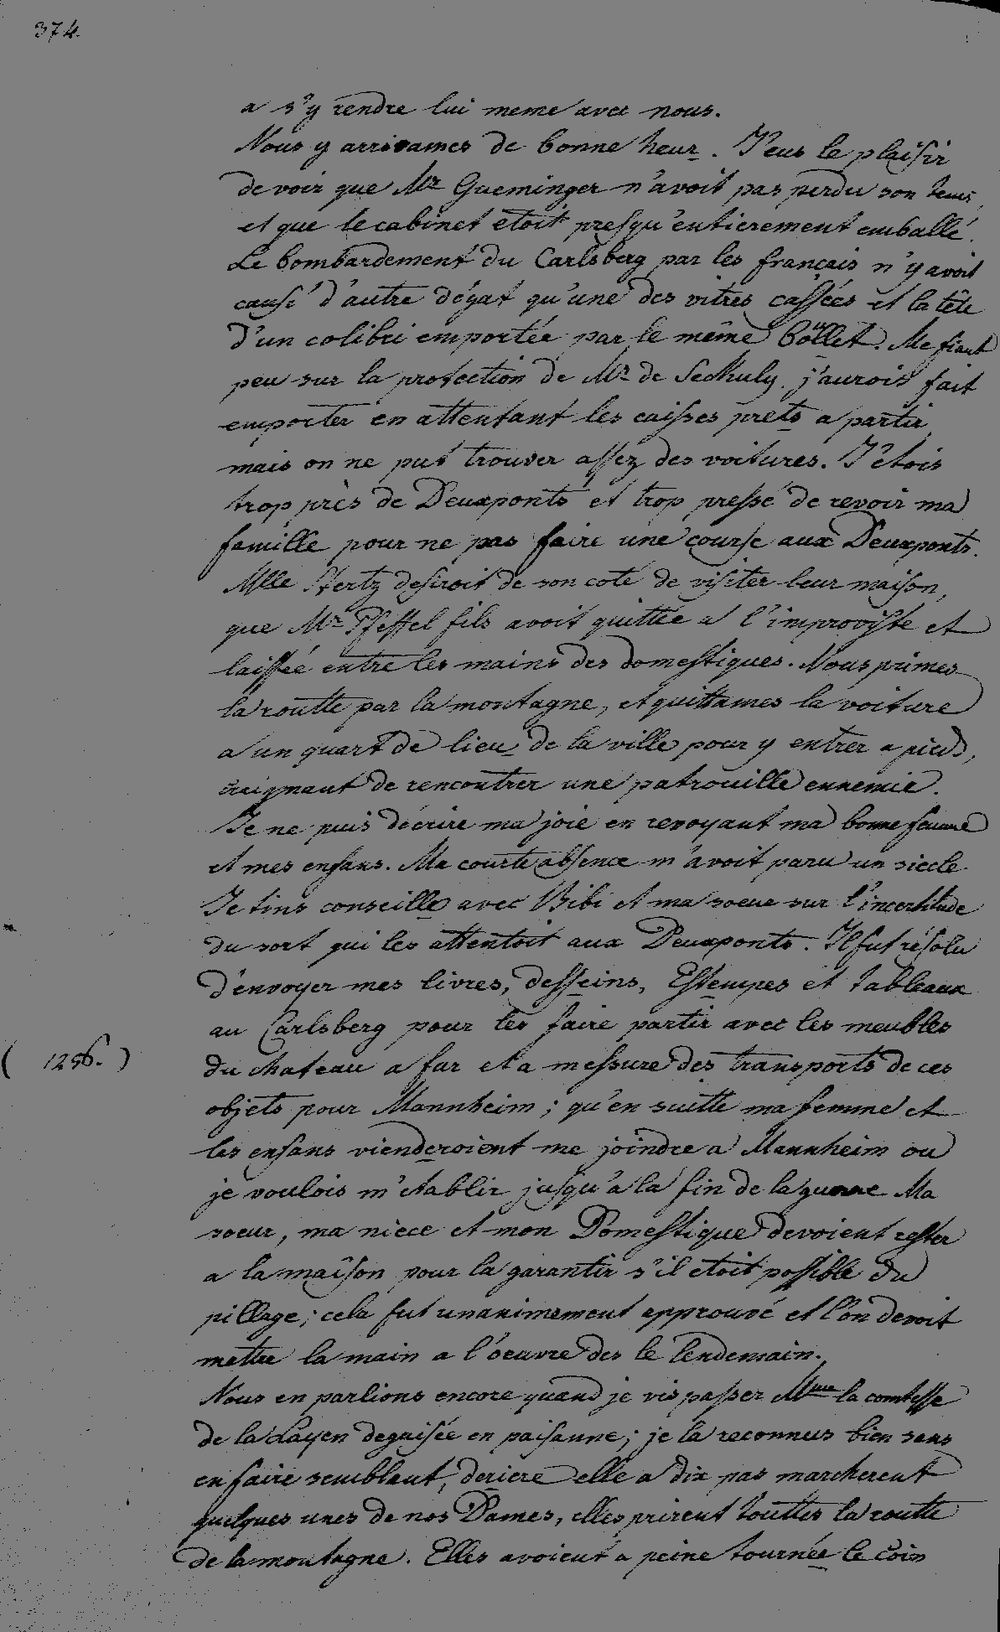 374.
a s'y rendre lui meme avec nous.
Nous y arrivames de bonne heur. J'eus le plaisir
de voir que Mr Gueminger n'avoit pas perdu son tems,
et que le cabinet etoit presqu'entierement emballé.
Le bombardement du Carlsberg par les français n'y avoit
causé d'autre dégat qu'une des vitres cassées et la tête
d'un colibri emportée par le même boullet. Me fiant
peu sur la protection de Mr de Seckuly, j'aurois fait
emporter en attentant les caisses prets a partir,
mais on ne put trouver assez des voitures. J'etois
trop près de Deuxponts et trop pressé de revoir ma
famille pour ne pas faire une course aux Deuxponts.
Mlle Hertz desiroit de son coté de visiter leur maison,
que Mr Pfeffel fils avoit quittée a l'improviste et
laissée entre les mains des domestiques. Nous primes
la routte par la montagne, et quittames la voiture
a un quart de lieu de la ville pour y entrer a pied,
craignant de rencontrer une patrouille ennemie.
Je ne puis décrire ma joie en revoyant ma bonne femme
et mes enfans. Ma courte absence m'avoit paru un siecle.
Je tins conseille avec Bibi et ma soeur sur l'incertitude
du sort qui les attentoit aux Deuxponts. Il fut résolu
d'envoyer mes livres, desseins, Estempes et tableaux
au Carlsberg pour les faire partir avec les meubles
( 1256. ) du chateau a fur et a messure des transports de ces
objets pour Mannheim; qu'en suitte ma femme et
les enfans vienderoient me joindre a Mannheim ou
je voulois m'etablir jusqu'à la fin de la guerre. Ma
soeur, ma niece et mon Domestique devoient rester
a la maison pour la garantir s'il etoit possible du
pillage; cela fut unanimement approuvé et l'on devoit
mettre la main a l'oeuvre des le lendemain.
Nous en parlions encore quand je vis passer Mme la comtesse
de la Layen deguisée en paisanne; je la reconnus bien sans
en faire semblant, deriere elle a dix pas marcherent
quelques unes de nos Dames, elles prirent touttes la routte
de la montagne. Elles avoient a peine tournée le coin